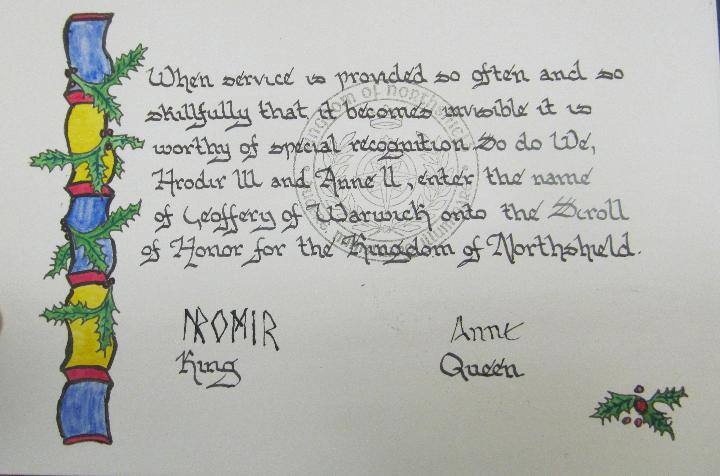 When service is provided so often and so
skillfully that it becomes invisible it is
worthy of special recognition. So do We,
Hrodir III and Anne II, enter the name
of Geoffery of Warwick onto the Scroll
of Honor for the Kingdom of Northshield.
King
Anne
Queen
kingdom of northshield